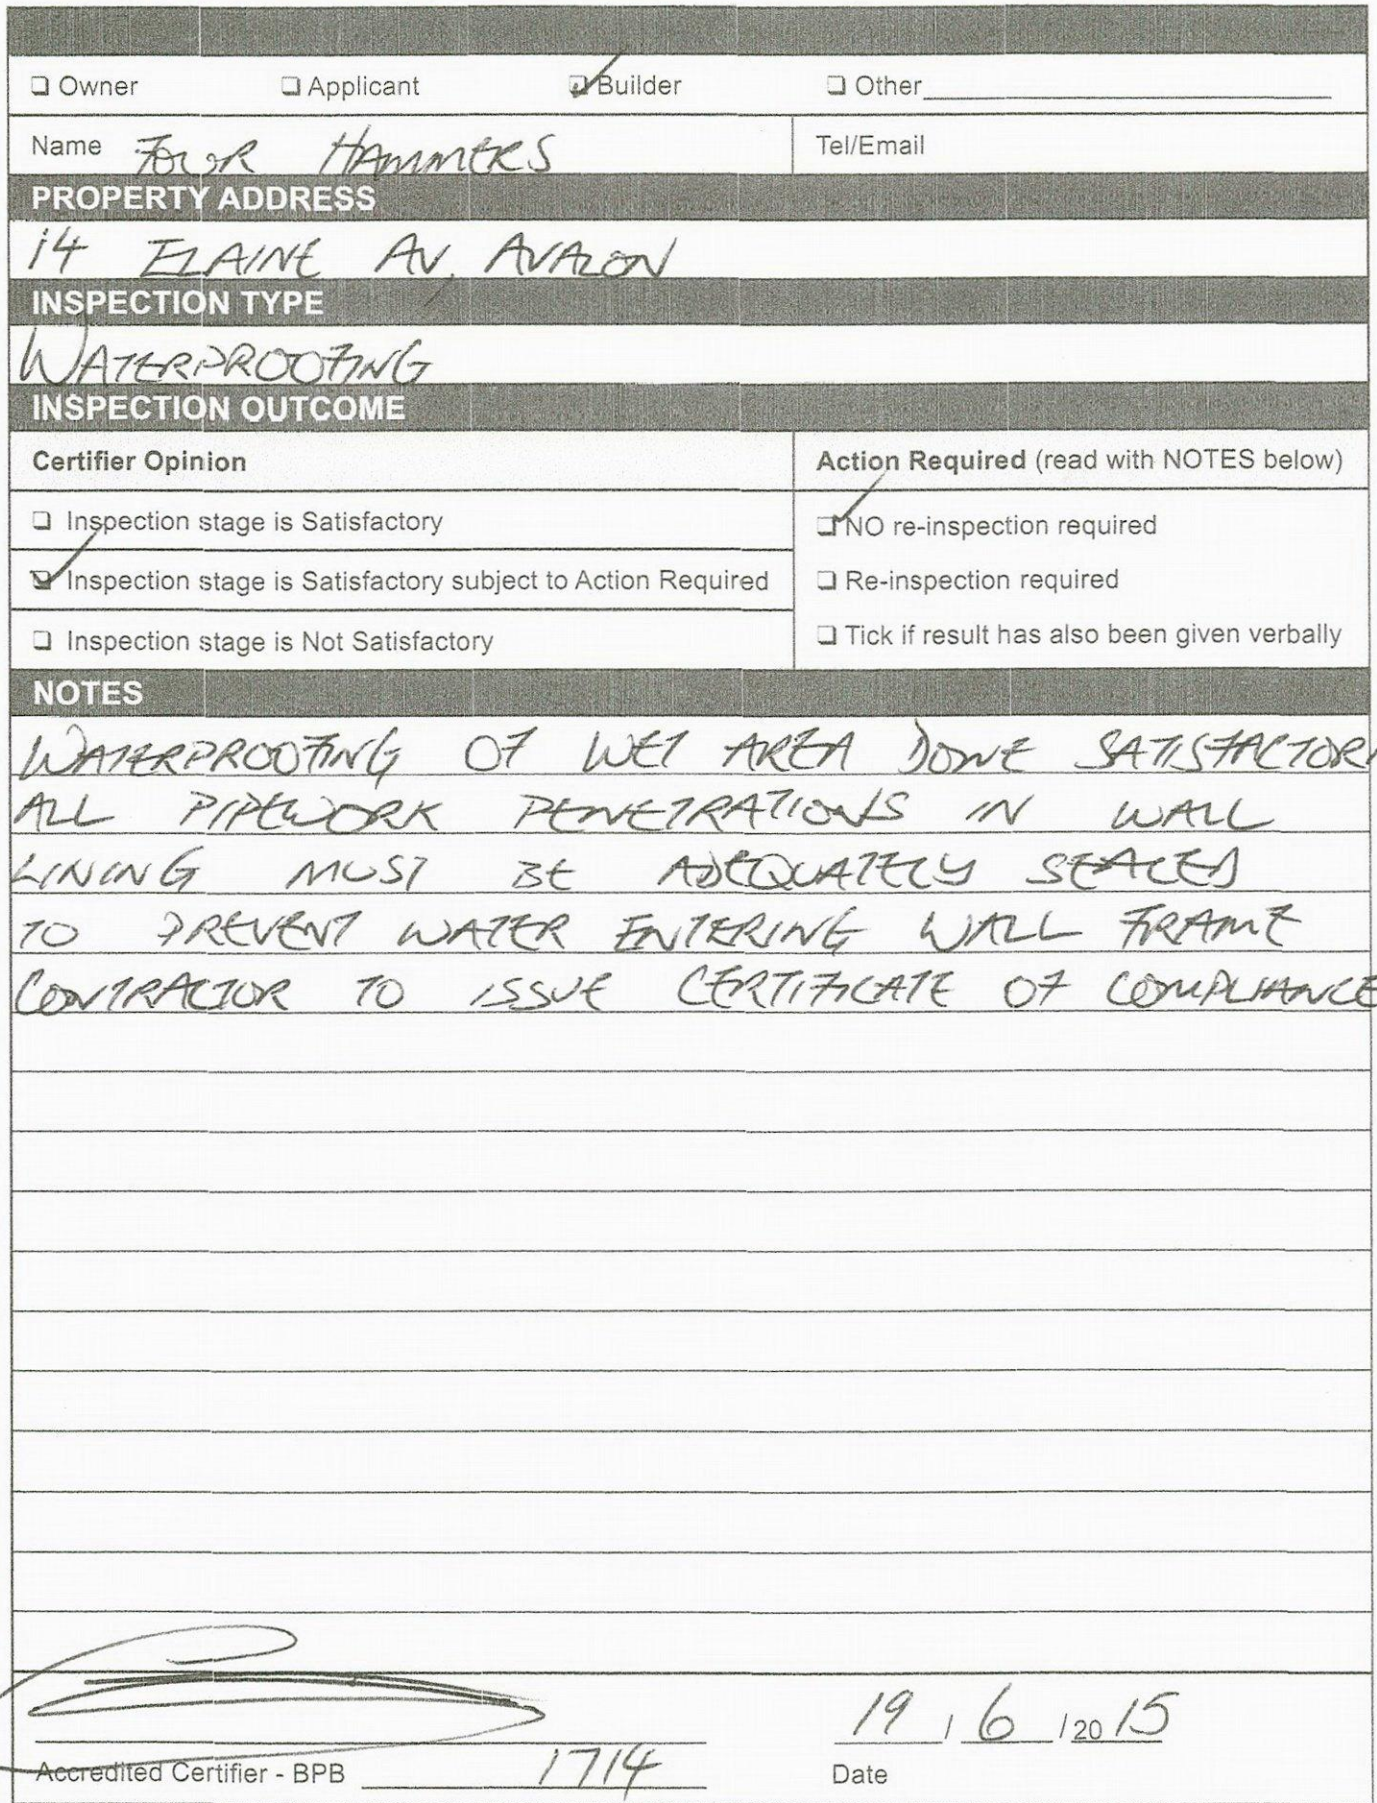 Owner Applicant Builder Other
Name FOUR HAMMERS Tel/Email
PROPERTY ADDRESS
14 ELAINE AV. AVALON
INSPECTION TYPE
WATERPROOFING
INSPECTION OUTCOME
Certifier Opinion Action Required (read with NOTES below)
Inspection stage is Satisfactory NO re-inspection required
Inspection stage is Satisfactory subject to Action Required Re-inspection required
Inspection stage is Not Satisfactory Tick if result has also been given verbally
NOTES
WATERPROOFING OF WET AREA DONE SATISFACTOR
ALL PIPEWORK PENETRATIONS IN WALL
LINING MUST BE ADEQUATELY SEALED
TO PREVENT WATER ENTERING WALL FRAME
CONTRACTOR TO ISSUE CERTIFICATE OF COMPLIANCE
19 / 6 / 20 15
Accredited Certifier - BPB 1714 Date